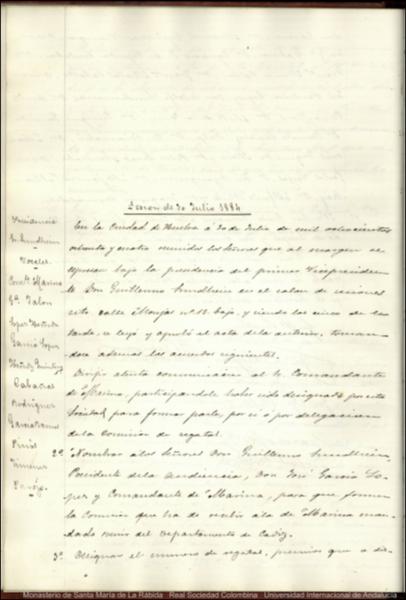 Sesion de 30 Julio 1884
Presidencia
Sr. Sundheim
Vocales
Comte. Marina
Ga. Talon
Lopez Hortuta
Garcia Lopez
Cabacas
Rodriguez
Jimenez
En la Ciudad de Huelva á 30 de Julio de mil ochocientos
ochenta y cuatro reunidos los Señores que al margen se
expresan bajo la presidencia del primer Vicepresiden
te Don Guillermo Sundheim en el salon de sesiones
sito calle Monjas nº 12 bajo, y siendo las cinco de la
tarde, se leyó y aprobó el acta de la anterior, toman
dose ademas los acuerdos siguientes.
Dirijir atenta comunicacion al Sr. Comandante
de Marina, participandole haber sido designado por esta
Sociedad para formar parte, por si ó por delegacion
de la Comision de regatas.
2º Nombrar a los Señores Don Guillermo Sundheim,
Presidente de la Audiencia, Don José Garcia Lo-
pez y Comandante de Marina, para que formen
la Comision que ha de recibir a la de Marina man
dada venir del Departamento de Cadiz.
3º Designar el numero de regatas, premios que a di-
Monasterio de Santa María de La Rábida - Real Sociedad Colombina - Universidad Internacional de Andalucía